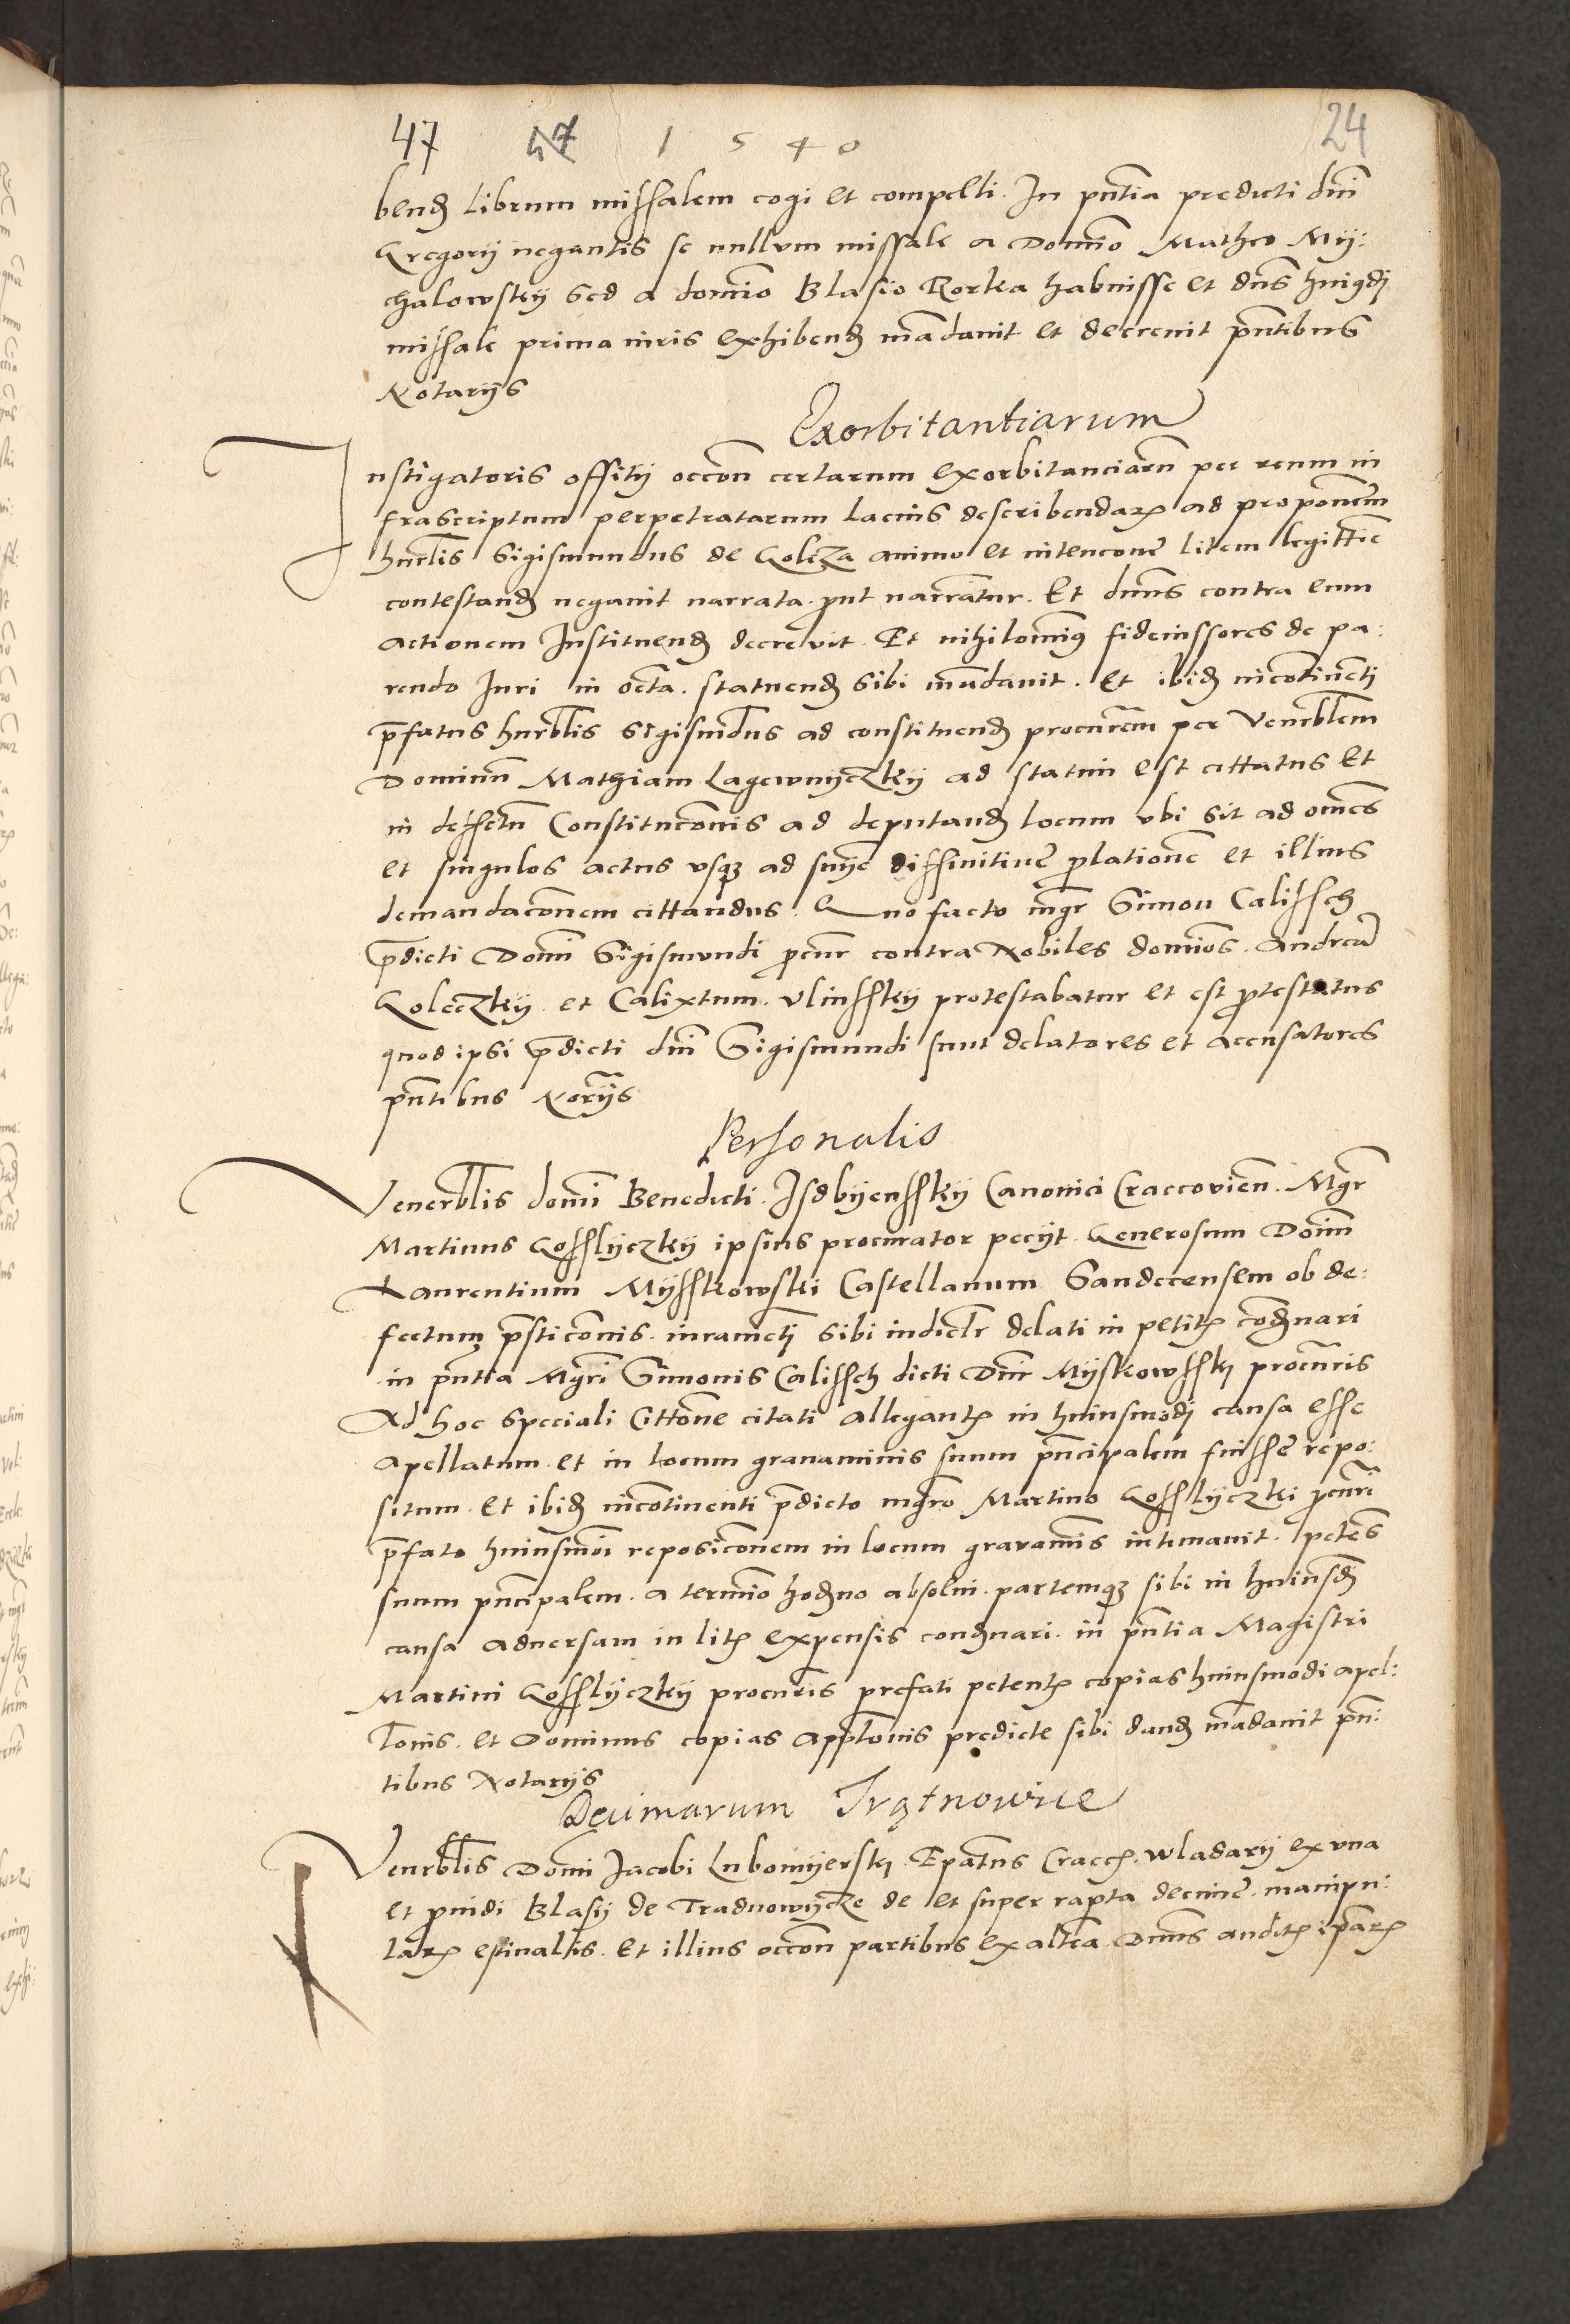 47 47 1540 24
bend librum missalem cogi et compelli. In pntia predicti dni
Gregorij negantis se nullum missale a Domino Matheo Mij:
chalowskij sed a domino Blasio Rorka habuisse et dns huiqdi
missale prima iuris exhibend mandauit et decreuit pntibus
Notarijs
Exorbitantiarum
Instigatoris offitij occon certarum exorbitanciaru per reum in
frascriptum perpetratarum lacius describendarum ad proponem
hnrlis Sigismundus de Golcza animo et intencone litem legittie
contestand negauit narrata prut narrantur. Et dnus contra eum
actionem Instituend decreuit. Et nihilominus fideiussores de pa:
rendo Iuri in octa. statuend sibi mandauit. Et ibid incotinenti
prefatus hnrblis Sigismdus ad constituend procurem per Venerblem
Dominum Mathiam Lagewnijczkij ad statim est cittatus Et
in deffectu Constituconis ad deputand locum vbi sit ad omnes
et singulos actus vsque ad snije diffinitiue prolatione et illius
demandaconem cittandus. Quo facto mgr Simon Calissch
predicti Domi Sigismundi procur contra Nobiles dominos Andrea
Goleczkij et Calixtum Vlinsskij protestabatur et est protestatus
quod ipsi predicti dni Sigismundi sunt delatores et accusatores
pntibus Norijs
Personalis
Venerblis domi Benedicti Isdbijensskij Canonici Craccovien. Mgr
Martinus Gosslijczkij ipsius procurator pecijt Generosum Domi
Laurentium Mijsskowski Castellanum Sandecensem ob de:
fectum presticonis. iuramenti sibi iudicilr delati in petitis condnari
in pntia Mgri Simonis Calissch dicti Dni Mijskowsski procuris
Ad hoc speciali Cittone citati allegantis in huiusmodi causa esse
apellatum et in locum grauaminis suum principalem fuisse repo:
situm. Et ibid incotinenti predicto mgro Martino Gosslijczki procuri
prefato huiusmoi reposiconem in locum grauamis intimauit. petens
suum principalem. a termino hodno absolui. partemque sibi in huiusdi
causa aduersam in litis expensis condnari. in pntia Magistri
Martini Gosslijczkij procuris prefati petentis copias huiusmodi apel:
lonis. Et Dominus copias applonis predicte sibi dand mandauit pn:
tibus Notarijs
Decimarum Trątnowice
Venrblis Domi Jacobi Lubomijerski Epatus Cracc. Wladarij ex vna
et prouidi Blasij de Tradnowijcze de et super rapta decime. manipu:
laris estiualis. Et illius occon partibus ex altera Dnus auditis ipsarum